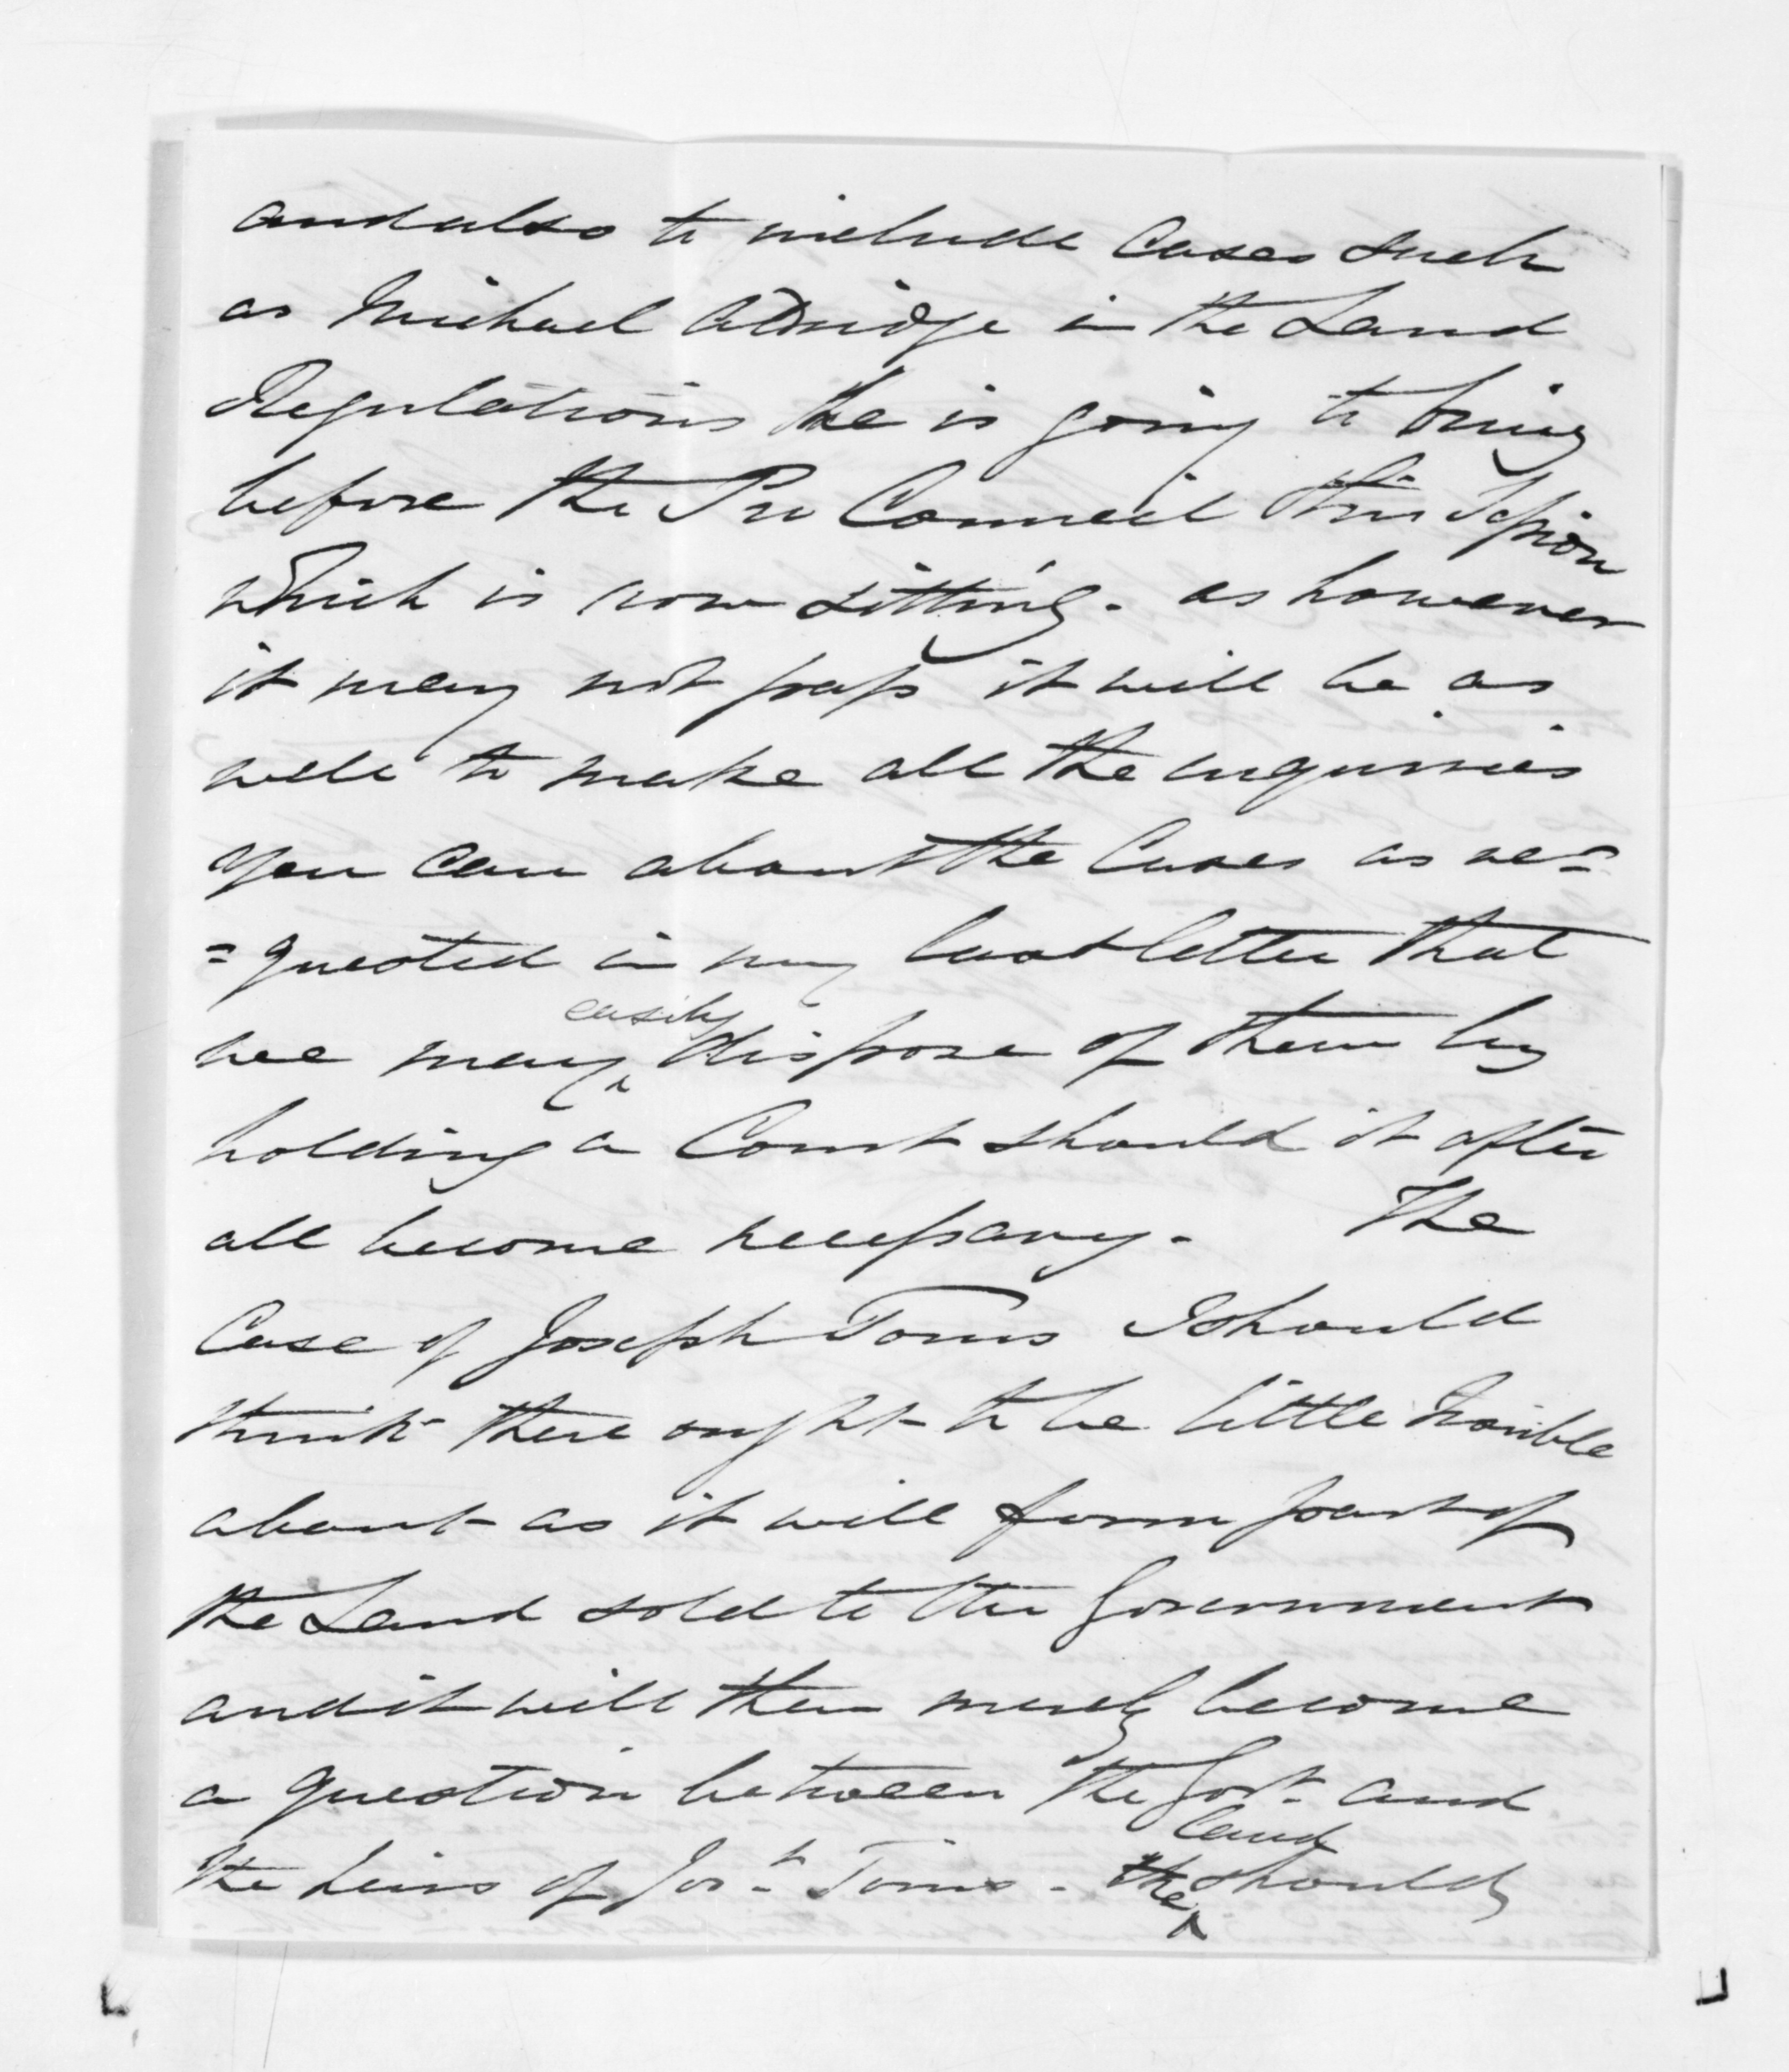 and also to include Cases such
as Michael Aldridge in the Land
Regulations he is going to bring
before the Pro Council this Session
which is now sitting. as however
it may not pass it will be as
well to make all the enquiries
you can about the Cases as re=
=quested in my last letter that
we may easily dispose of them by
holding a Court should it after
all become necessary. The
Case of Joseph Toms I should
think there ought to be little trouble
about as it will form part of
the Land sold to the Government
and it will then merely become
a question between the Govt. and
the heirs of Josh. Toms. the land should